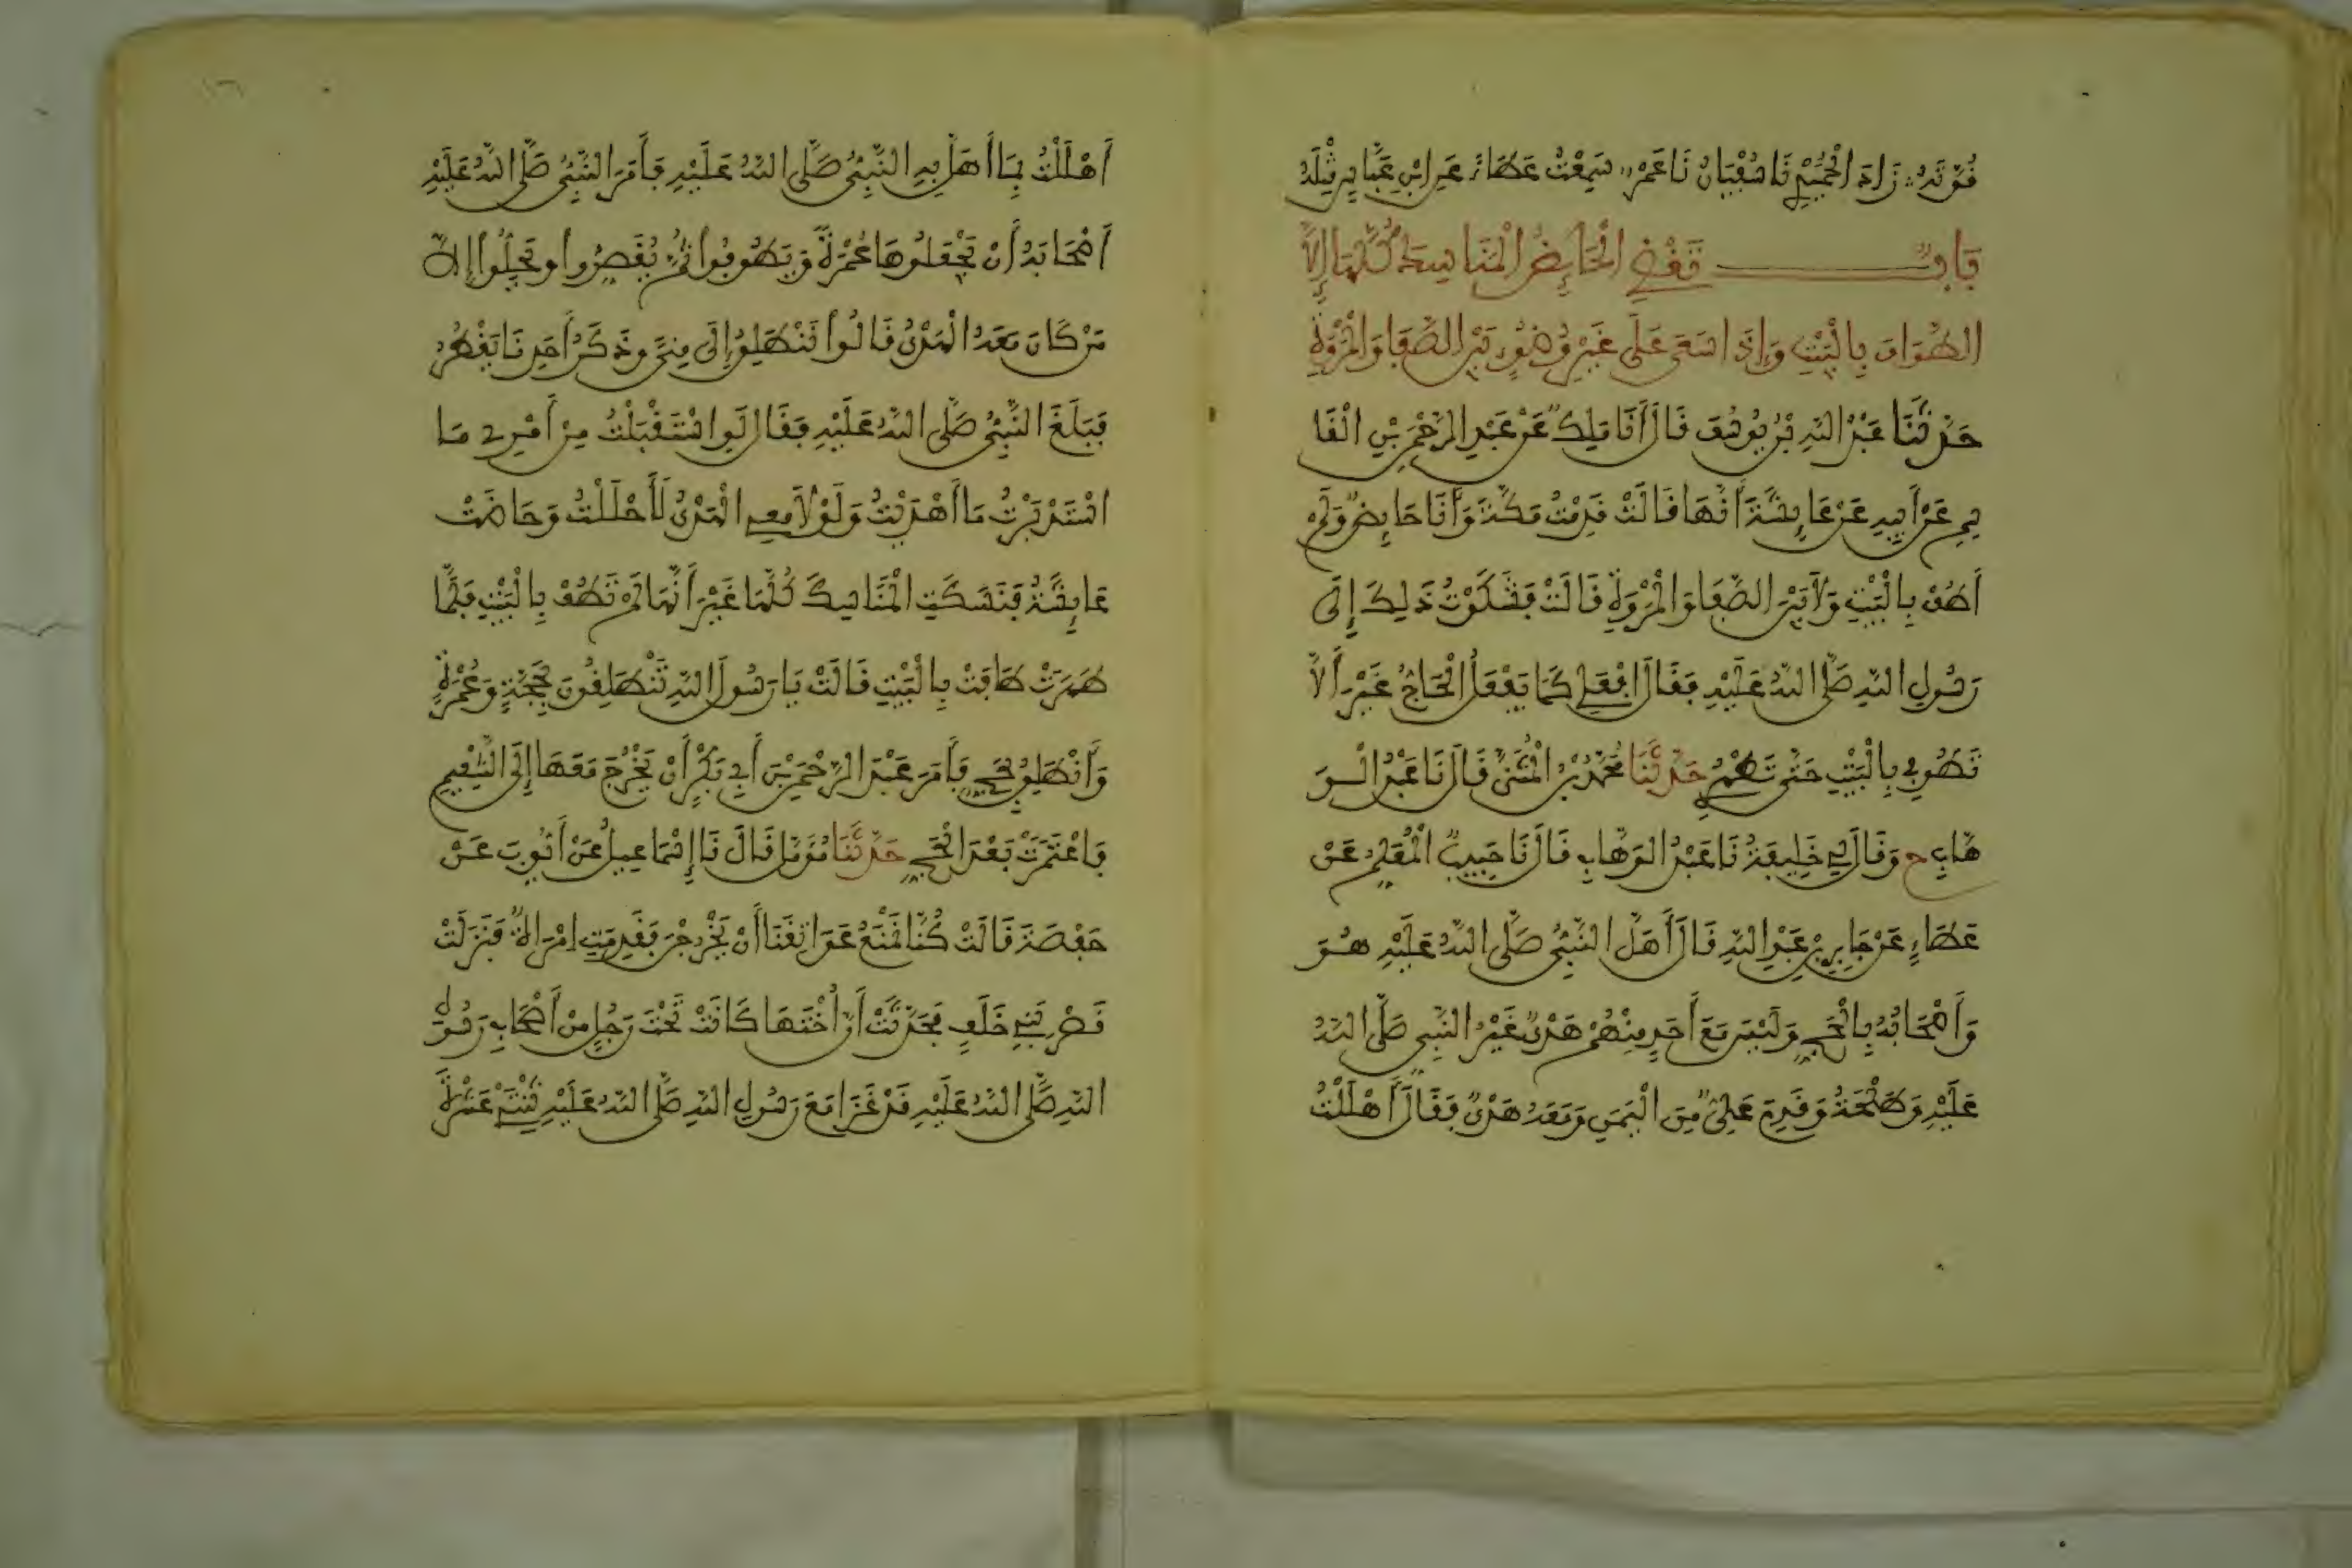 قُوَّتَهُ زَادَ الْحُمَيْدِي نَا سُفْيَانُ نَا عَمْرٌو سَمِعْتُ عَطَاءً عَنِ ابْنِ عَبَّاسٍ مِثْلَهُ
بَابٌ تَقْضِي الْحَائِضُ الْمَنَاسِكَ كُلَّهَا إِلَّا
الطَّوَافَ بِالْبَيْتِ وَإِذَا سَعَى عَلَى غَيْرِ وُضُوءٍ بَيْنَ الصَّفَا وَالْمَرْوَةِ
حَدَّثَنَا عَبْدُ اللهِ بْنُ يُوسُفَ قَالَ أَنَا مَالِكٌ عَنْ عَبْدِ الرَّحْمَنِ بْنِ الْقَا
سِمِ عَنْ أَبِيهِ عَنْ عَائِشَةَ أَنَّهَا قَالَتْ قَدِمْتُ مَكَّةَ وَأَنَا حَائِضٌ وَلَمْ
أَطُفْ بِالْبَيْتِ وَلَا بَيْنَ الصَّفَا وَالْمَرْوَةِ قَالَتْ فَشَكَوْتُ ذَلِكَ إِلَى
رَسُولِ اللهِ صَلَّى اللهُ عَلَيْهِ فَقَالَ افْعَلِي كَمَا يَفْعَلُ الْحَاجُّ غَيْرَ أَلَّا
تَطُوفِي بِالْبَيْتِ حَتَّى تَطْهُرِي حَدَّثَنَا مُحَمَّدُ بْنُ الْمُثَنَّى قَالَ نَا عَبْدُ الْوَ
هَّابِ ح وَقَالَ لِي خَلِيفَةُ نَا عَبْدُ الْوَهَّابِ قَالَ نَا حَبِيبٌ الْمُعَلِّمُ عَنْ
عَطَاءٍ عَنْ جَابِرِ بْنِ عَبْدِ اللهِ قَالَ أَهَلَّ النَّبِيُّ صَلَّى اللهُ عَلَيْهِ هُوَ
وَأَصْحَابُهُ بِالْحَجِّ وَلَيْسَ مَعَ أَحَدٍ مِنْهُمْ هَدْيٌ غَيْرُ النَّبِيِّ صَلَّى اللهُ
عَلَيْهِ وَطَلْحَةُ وَقَدِمَ عَلِيٌّ مِنَ الْيَمَنِ وَمَعَهُ هَدْيٌ فَقَالَ أَهْلَلْتُ
أَهْلَلْتُ بِمَا أَهَلَّ بِهِ النَّبِيُّ صَلَّى اللهُ عَلَيْهِ فَأَمَرَ النَّبِيُّ صَلَّى اللهُ عَلَيْهِ
أَصْحَابَهُ أَنْ يَجْعَلُوهَا عُمْرَةً وَيَطُوفُوا ثُمَّ يُقَصِّرُوا وَيَحِلُّوا إِلَّا
مَنْ كَانَ مَعَهُ الْهَدْيُ قَالُوا نَنْطَلِقُ إِلَى مِنًى وَذَكَرُ أَحَدِنَا يَقْطُرُ
فَبَلَغَ النَّبِيَّ صَلَّى اللهُ عَلَيْهِ فَقَالَ لَوِ اسْتَقْبَلْتُ مِنْ أَمْرِي مَا
اسْتَدْبَرْتُ مَا أَهْدَيْتُ وَلَوْلَا مَعِي الْهَدْيُ لَأَحْلَلْتُ وَحَاضَتْ
عَائِشَةُ فَنَسَكَتِ الْمَنَاسِكَ كُلَّهَا غَيْرَ أَنَّهَا لَمْ تَطُفْ بِالْبَيْتِ فَلَمَّا
طَهُرَتْ طَافَتْ بِالْبَيْتِ قَالَتْ يَا رَسُولَ اللهِ تَنْطَلِقُونَ بِحَجَّةٍ وَعُمْرَةٍ
وَأَنْطَلِقُ بِحَجٍّ فَأَمَرَ عَبْدَ الرَّحْمَنِ بْنَ أَبِي بَكْرٍ أَنْ يَخْرُجَ مَعَهَا إِلَى التَّنْعِيمِ
فَاعْتَمَرَتْ بَعْدَ الْحَجِّ حَدَّثَنَا مُؤَمَّلٌ قَالَ نَا إِسْمَاعِيلُ عَنْ أَيُّوبَ عَنْ
حَفْصَةَ قَالَتْ كُنَّا نَمْنَعُ عَوَاتِقَنَا أَنْ يَخْرُجْنَ فَقَدِمَتِ امْرَأَةٌ فَنَزَلَتْ
قَصْرَ بَنِي خَلَفٍ فَحَدَّثَتْ أَنَّ أُخْتَهَا كَانَتْ تَحْتَ رَجُلٍ مِنْ أَصْحَابِ رَسُولِ
اللهِ صَلَّى اللهُ عَلَيْهِ قَدْ غَزَا مَعَ رَسُولِ اللهِ صَلَّى اللهُ عَلَيْهِ ثِنْتَيْ عَشْرَةَ